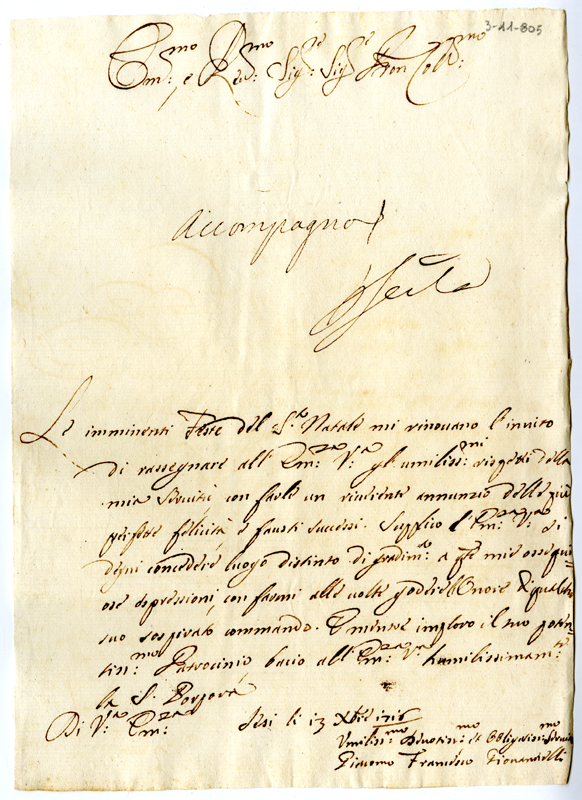 3-11-805
Em:mo e Rev:mo Sig:re Sig:re Pron Coll:mo
Accompagna
Le imminenti Feste del S.to Natale mi rinovano l'invito
di rassegnare all' Em:za V:a gl'umiliss:mi rispetti della
mia servitù con farle un riverente annunzio delle più
perfette felicità e fausti successi. Supplico l'Em:za V:ra si
degni concedere luogo distinto di gradim:to a q.te mie ossequi=
ose espressioni, con farmi alle volte godere l'Onore di qualche
suo sospirato commando. E mentre imploro il suo poten=
tiss:mo Patrocinio bacio all' Em:za V:ra humilissimam:te
la S. Porpora
Di V:ra Em:za Jesi li 13 Xbre 1716
Umiliss:mo Devotiss:mo et Obligatiss:mo Servit
Giacomo Francesco